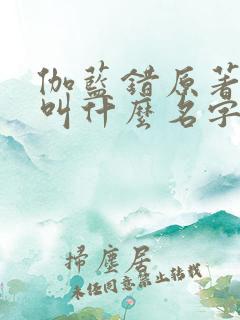 伽藍錯原著
叫什麼名字
掃塵居
未經同意禁止转载